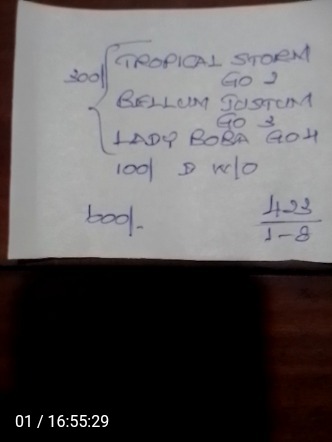 300/ TROPICAL STORM
GO 2
BELLUM JUSTUM
GO 3
LADY BOBA GO 4
100/ D W/O
600/-
423
1-8
01 / 16:55:29